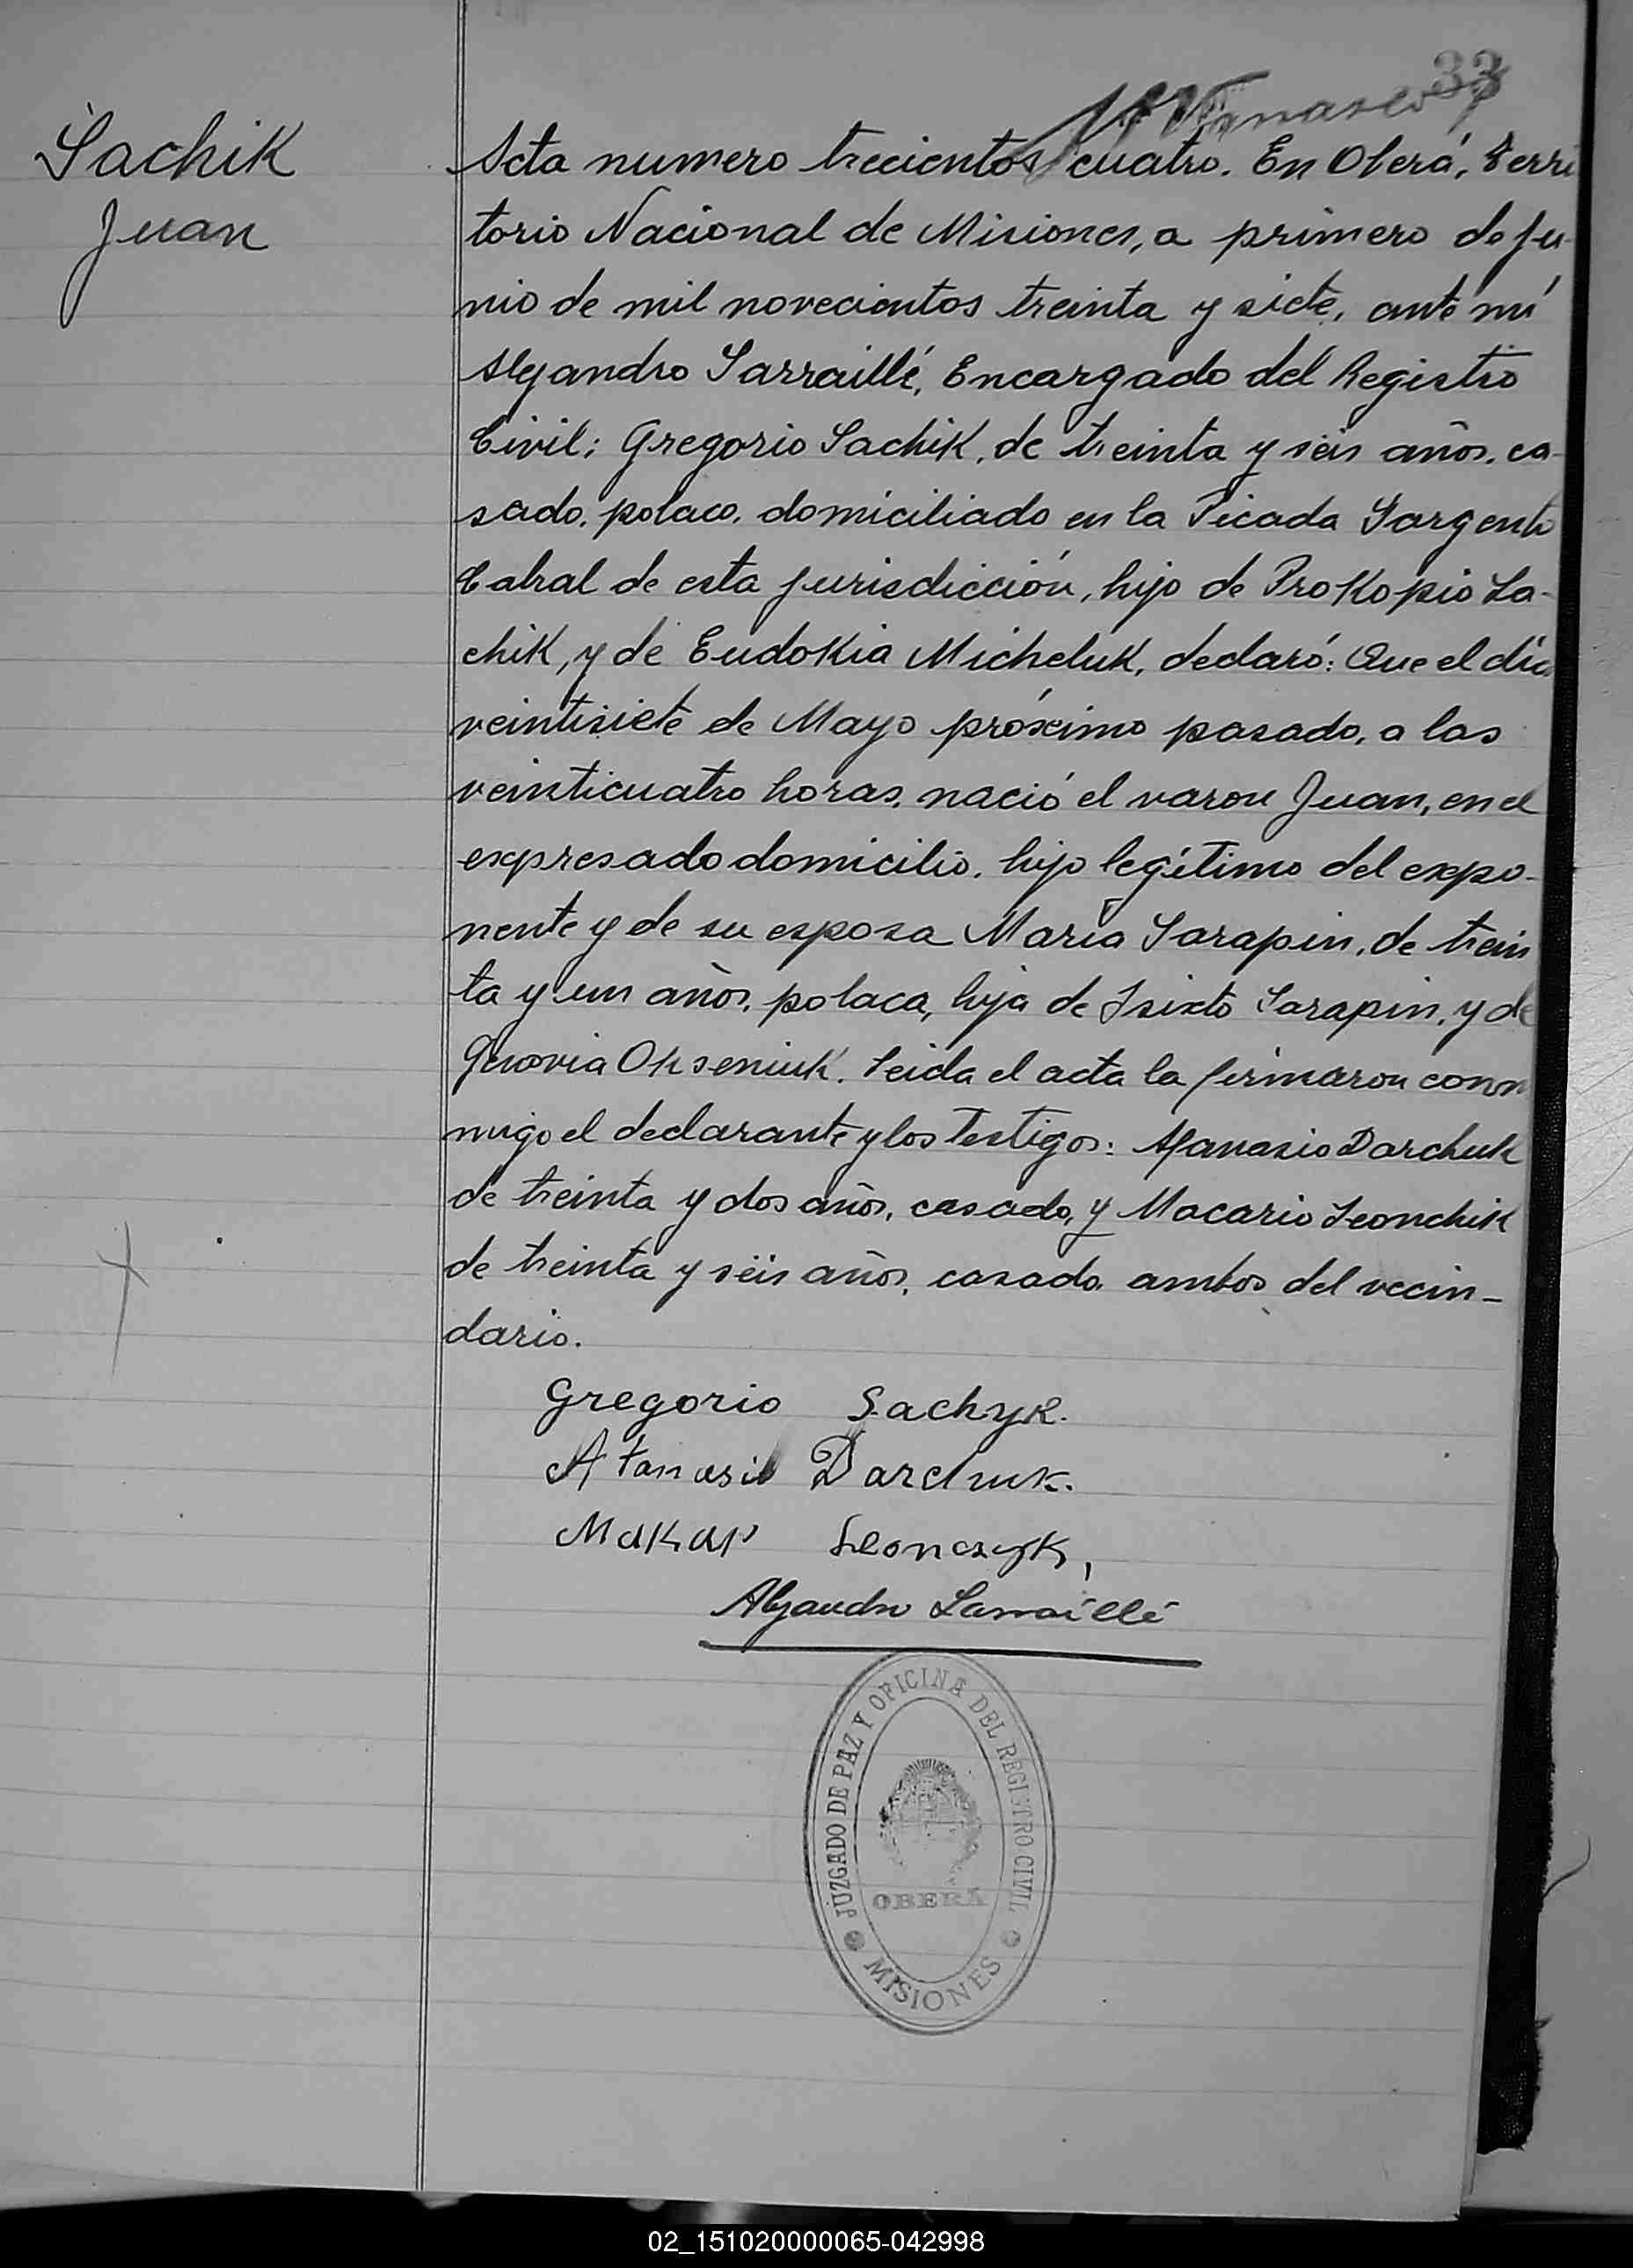 33
Sachik
Juan
Acta numero trecientos cuatro. En Oberá, Terri
torio Nacional de Misiones, a primero de Ju-
nio de mil novecientos treinta y siete, ante mí
Alejandro Sarraillé, Encargado del Registro
Civil; Gregorio Sachik, de treinta y seis años, ca-
sado, polaco, domiciliado en la Picada Sargento
Cabral de esta jurisdicción, hijo de Prokopio Sa-
chik, y de Eudokia Micheluk, declaró: Que el día
veintisiete de Mayo próximo pasado, a las
veinticuatro horas, nació el varon Juan, en el
expresado domicilio, hijo legítimo del expo-
nente y de su esposa María Sarapin, de trein
ta y un años, polaca, hija de Isixto Sarapin, y de
Okseniuk. Leida el acta la firmaron conm
migo el declarante y los testigos: Afanasio Darchuk
de treinta y dos años, casado, y Macario Leonchik
de treinta y seis años, casado, ambos del vecin-
dario.
Gregorio Sachyk.
Afanasio Darchuk.
Makar Leonczyk,
Alejandro Sarraillé
JUZGADO DE PAZ Y OFICINA DEL REGISTRO CIVIL
OBERÁ
MISIONES
02_151020000065-042998